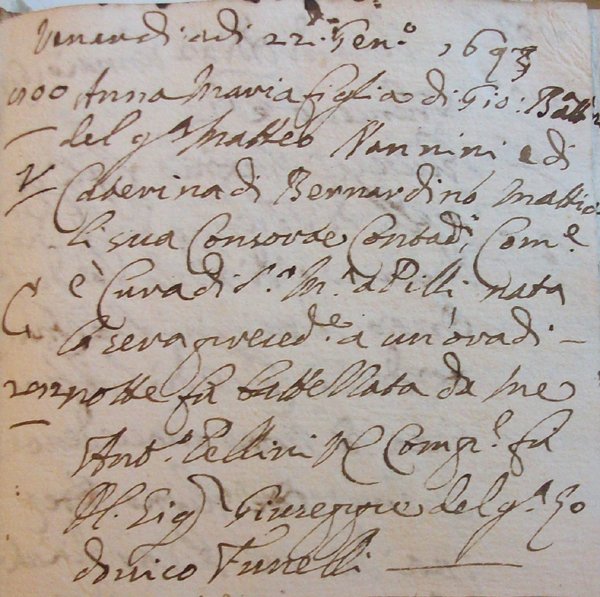 Venerdi adi 22: Gen.o 1693
Anna Maria figlia di Gio: Batt
del q.m Matteo Nannini e di
Caterina di Bernardino Mattio
li sua Consorte Contad.i Com.e
e Cura di S.a M.a a Pilli nata
la sera preced.e a un'ora di -
notte fu battellata da me
Ant.o Pellini Comp.e fu
Il Sig. Giuseppe del q.m Lo
dovico Funelli